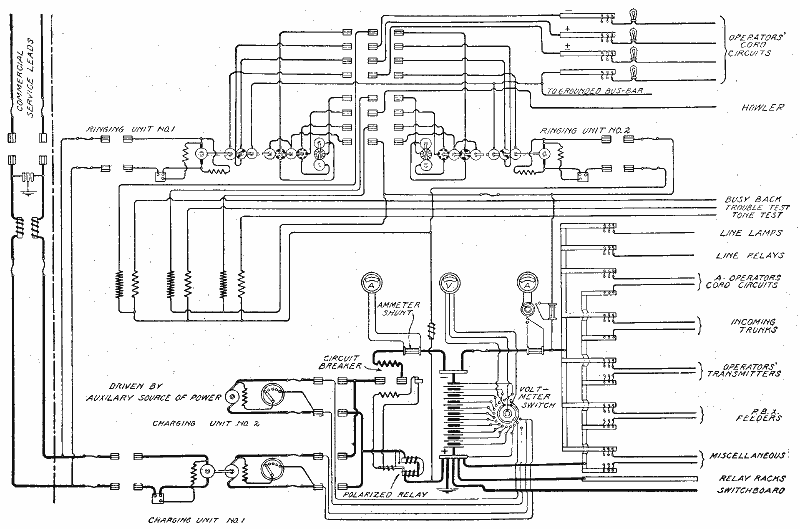 COMMERCIAL
SERVICE LEADS
RINGING UNIT NO.1
RINGING UNIT NO.2
OPERATORS'
CORD
CIRCUITS
TO GROUNDED BUS-BAR
HOWLER
BUSY BACK
TROUBLE TEST
TONE TEST
LINE LAMPS
LINE RELAYS
A-OPERATORS
CORD CIRCUITS
INCOMING
TRUNKS
OPERATORS'
TRANSMITTERS
P.B.X.
FEEDERS
MISCELLANEOUS
RELAY RACKS
SWITCHBOARD
A
V
A
AMMETER
SHUNT
CIRCUIT
BREAKER
VOLT-
METER
SWITCH
DRIVEN BY
AUXILARY SOURCE OF POWER
CHARGING UNIT NO. 2
POLARIZED RELAY
CHARGING UNIT NO.1